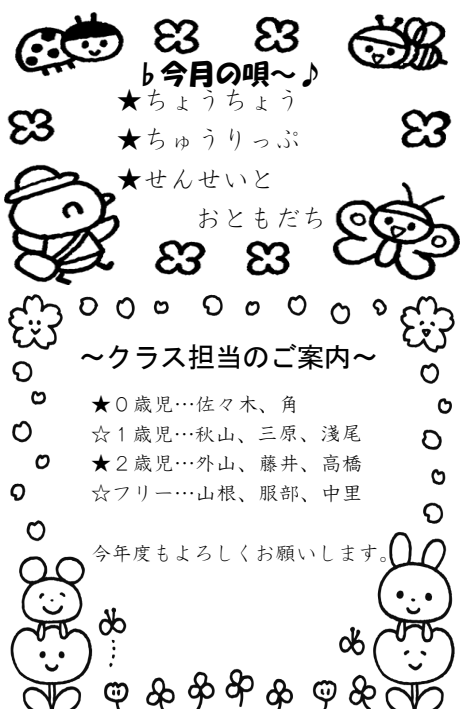 ♭今月の唄～♪
★ちょうちょう
★ちゅうりっぷ
★せんせいと
おともだち
～クラス担当のご案内～
★０歳児…佐々木、角
☆１歳児…秋山、三原、淺尾
★２歳児…外山、藤井、高橋
☆フリー…山根、服部、中里
今年度もよろしくお願いします。